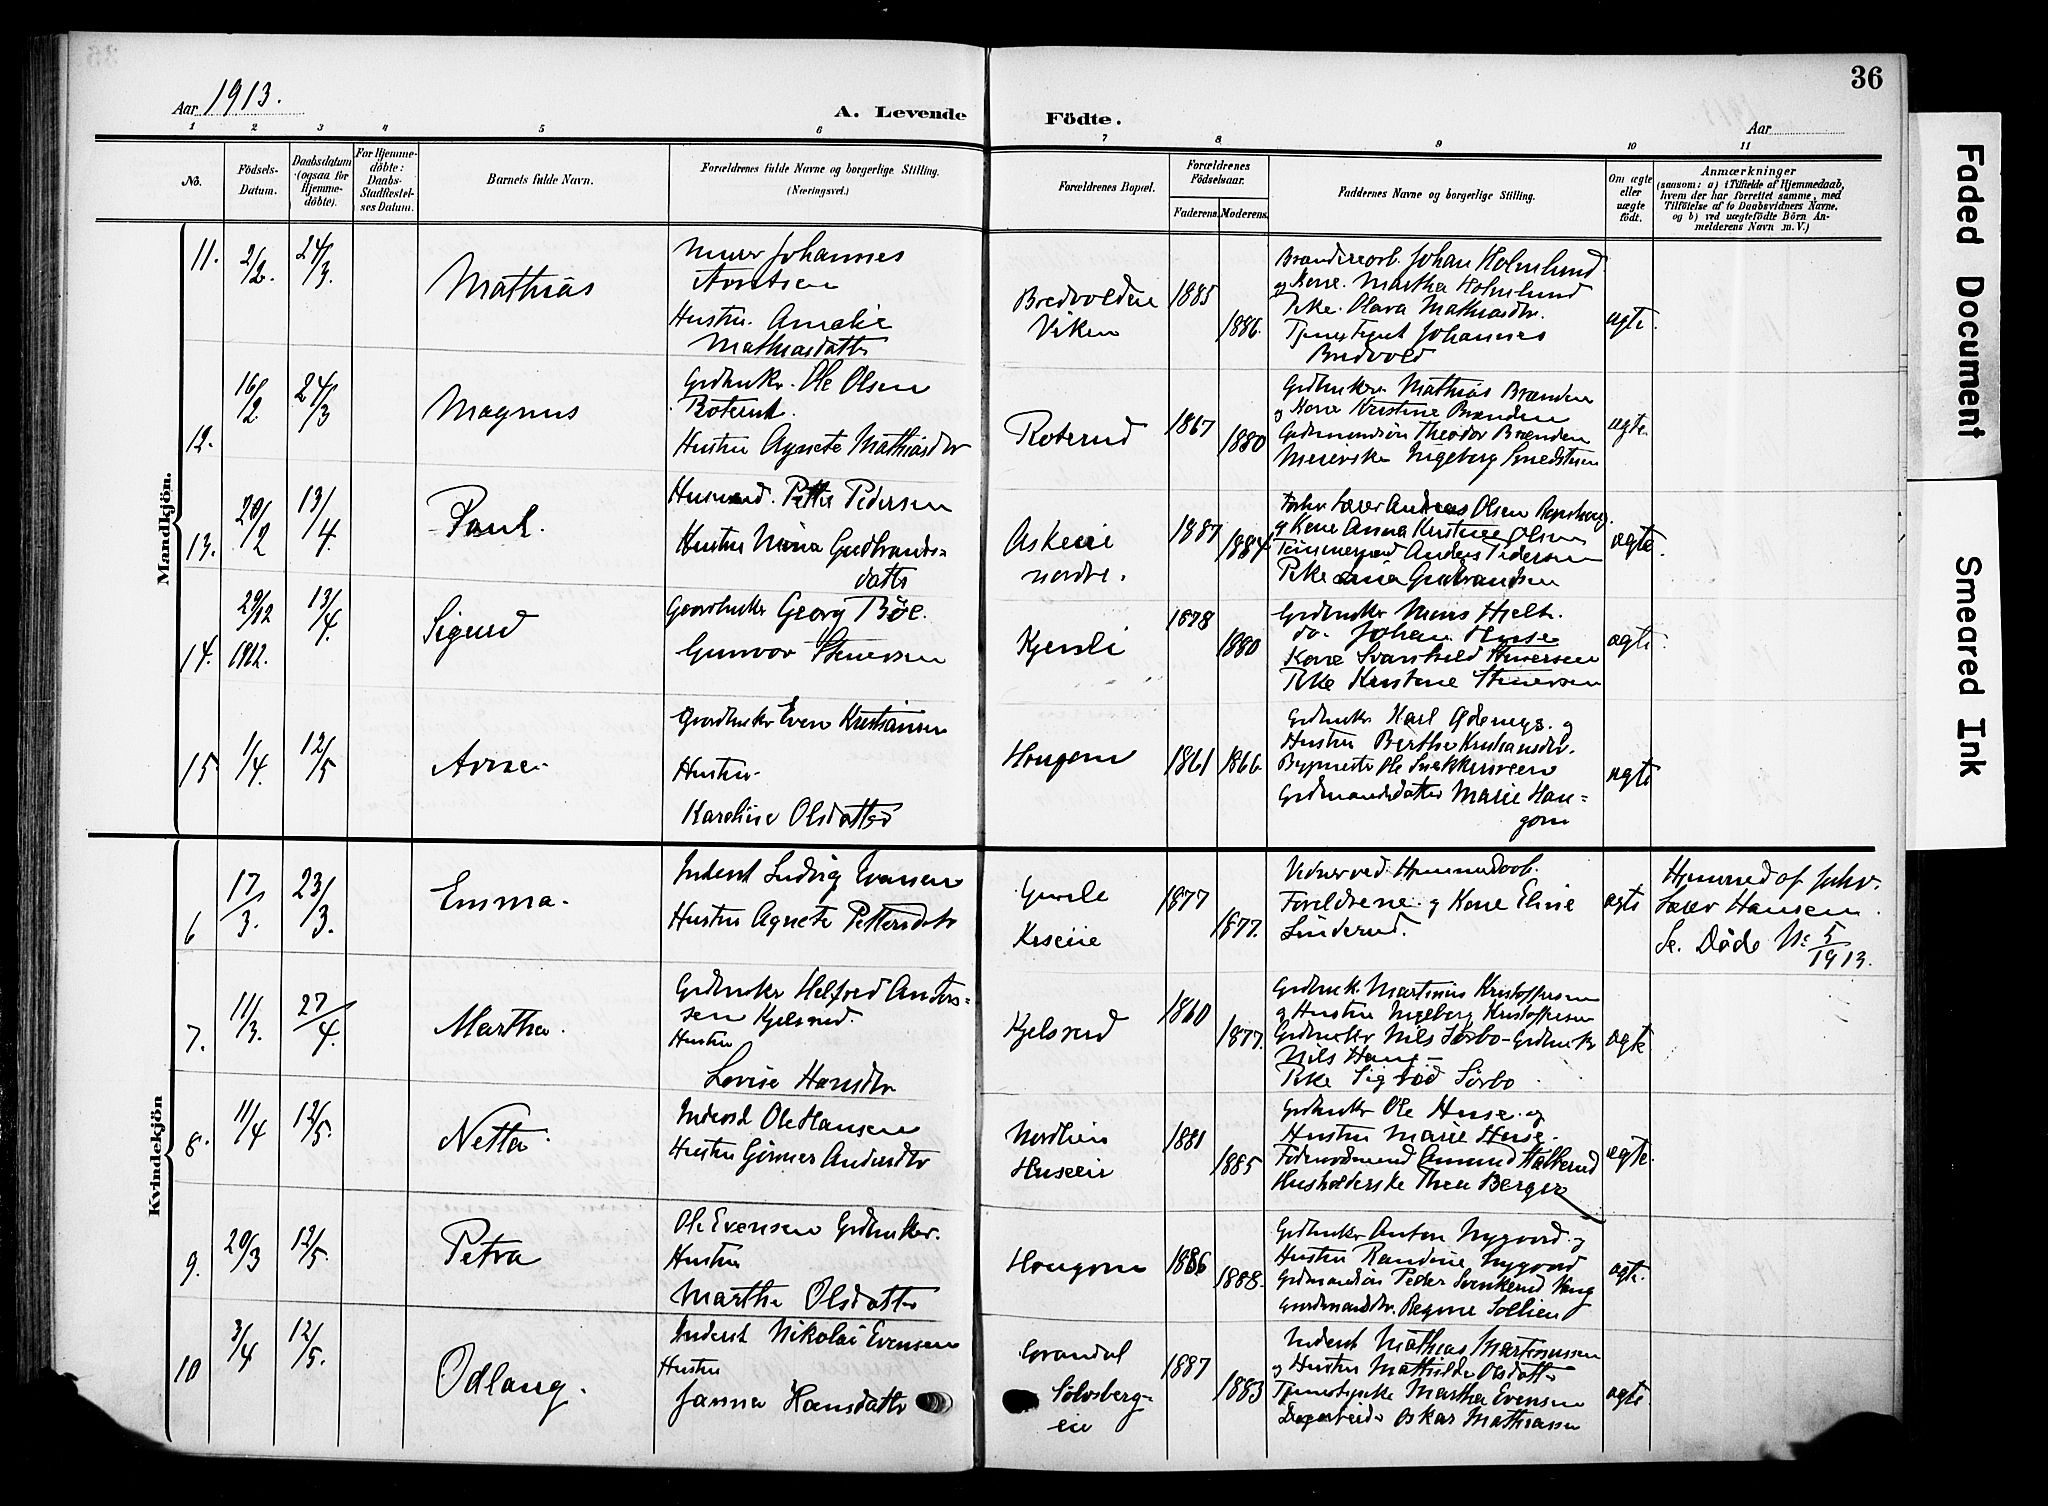 36
Aar 1913.
A. Levende Födte.
Aar
1 2 3 4 5 6 7 8 9 10 11
No.
Födsels-Datum.
Daabsdatum (ogsaa for Hjemme-döbte).
For Hjemme-döbte: Daabs-Stadfæstel-ses Datum.
Barnets fulde Navn.
Forældrenes fulde Navne og borgerlige Stilling. (Næringsvei.)
Forældrenes Bopæl.
Forældrenes Födselsaar.
Faderens. Moderens.
Faddernes Navne og borgerlige Stilling.
Om ægte eller uægte födt.
Anmærkninger
(saasom: a) i Tilfælde af Hjemmedaab,
hvem der har forrettet samme, med
Tilföielse af to Daabsvidners Navne.
og b) ved uægtefödte Börn An-
melderens Navn m. V.)
Mandkjön.
11. 2/2. 24/3.
Mathias
Murer Johannes
Arntsen
Hustru. Amalie
Mathiasdatter
Bredvolden
Viken
1885 1886.
Johan Holmlund
og Kone. Martha Holmlund
Pike. Olava Mathiasdtr.
Johannes
Bredvold
ægte.
12. 16/2 24/3
Magnus
Grdbruker. Ole Olsen
Roterud.
Hustru Agnete Mathiasdtr
Roterud
1867 1880
Grdbruker Mathias Brænden
og Kone Kristine Brænden
Grdmandsön Theodor Brænden
Meierske Ingeborg
ægte.
13. 20/2 13/4.
Paul.
Husmand. Petter Pedersen
Hustru Nina Gudbrands-
datter
Askeeie
nordre.
1887 1884
Andreas Olsen
og Kone Anna Kristine Olsen
Anders Pedersen
Pike Gudbrandsen
ægte.
14. 29/12 1912. 13/4.
Sigurd
Gaardbruker Georg Böe.
Gunvor Stenersen
Kjensli
1878 1880
Grdbruker Hjelt.
do. Johan
Kone Svanhild Stenersen
Pike Kristine Stenersen
ægte.
15. 1/4. 12/5
Arne.
Gaardbruker Even Kristiansen
Hustru.
Karoline Olsdatter
Hougom
1861 1866.
Grdbruker Karl og
Hustru Berthe Kristiansdtr.
Ole
Grdmandsdatter Marie Hau-
gom
ægte
Kvindekjön
6 17/3. 23/3.
Emma.
Inderst Ludvig Evensen
Hustru Agnete Pettersdtr
1877 1877.
Vidner ved Hjemmedaab.
Foreldrene og Kone Eline
Linderud.
ægte
Hjemmed af Jordm.
Hansen.
Se. Døde No 5/1913.
7. 11/3. 27/4.
Martha.
Grdbruker Helfred Anders-
sen Kjelsrud.
Hustru
Lovise Hansdtr
Kjelsrud
1860 1877.
Grdbruk. Martinius Kristoffersen
og Hustru Ingeborg Kristoffersen
Grdbruker Nils Sørbo - Grdbruker
Nils Haug -
Pike Sigrid Sørbo.
ægte
8. 11/4 12/5.
Netta.
Inderst Ole Hansen
Hustru Andersdtr
Nordlien
Huseeie
1881 1885
Grdbruker Ole Huse og
Hustru Marie Huse.
Amund
Husholderske Thea Berger
ægte.
9. 20/3 12/5.
Petra
Ole Evensen Grdbruker.
Hustru
Marthe Olsdatter
Hougom
1886 1888.
Grdbruker Anton Nygaard og
Hustru Randine Nygaard
Grdmandsön Peder
Grdmandsdtr. Regine Sollien
ægte.
10 3/4 12/5.
Odlaug.
Inderst Nikolai Evensen
Hustru
Janna Hansdatter
Grandal
Sölvsberg-
eie
1887 1883
Inderst Mathias Martinussen
og Hustru Mathilde Olsdatter
Martha Evensen
Oskar Mathiassen
ægte.
Faded Document
Smeared Ink